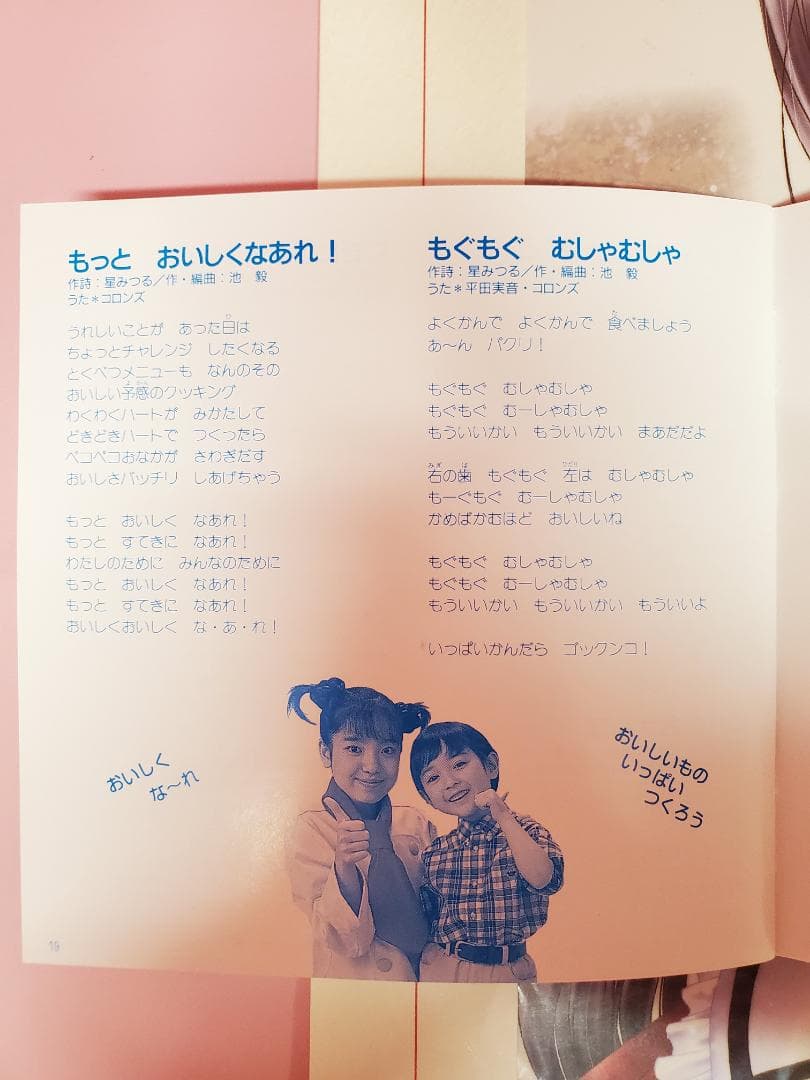 もっと　おいしくなあれ！
作詩：星みつる／作・編曲：池　毅
うた＊コロンズ
うれしいことが　あった日は
ちょっとチャレンジ　したくなる
とくべつメニューも　なんのその
おいしい予感のクッキング
わくわくハートが　みかたして
どきどきハートで　つくったら
ペコペコおなかが　さわぎだす
おいしさバッチリ　しあげちゃう
もっと　おいしく　なあれ！
もっと　すてきに　なあれ！
わたしのために　みんなのために
もっと　おいしく　なあれ！
もっと　すてきに　なあれ！
おいしくおいしく　な・あ・れ！
もぐもぐ　むしゃむしゃ
作詩：星みつる／作・編曲：池　毅
うた＊平田実音・コロンズ
よくかんで　よくかんで　食べましょう
あ〜ん　パクリ！
もぐもぐ　むしゃむしゃ
もぐもぐ　むーしゃむしゃ
もういいかい　もういいかい　まあだだよ
右の歯　もぐもぐ　左は　むしゃむしゃ
もーぐもぐ　むーしゃむしゃ
かめばかむほど　おいしいね
もぐもぐ　むしゃむしゃ
もぐもぐ　むーしゃむしゃ
もういいかい　もういいかい　もういいよ
いっぱいかんだら　ゴックンコ！
おいしく
な〜れ
おいしいもの
いっぱい
つくろう